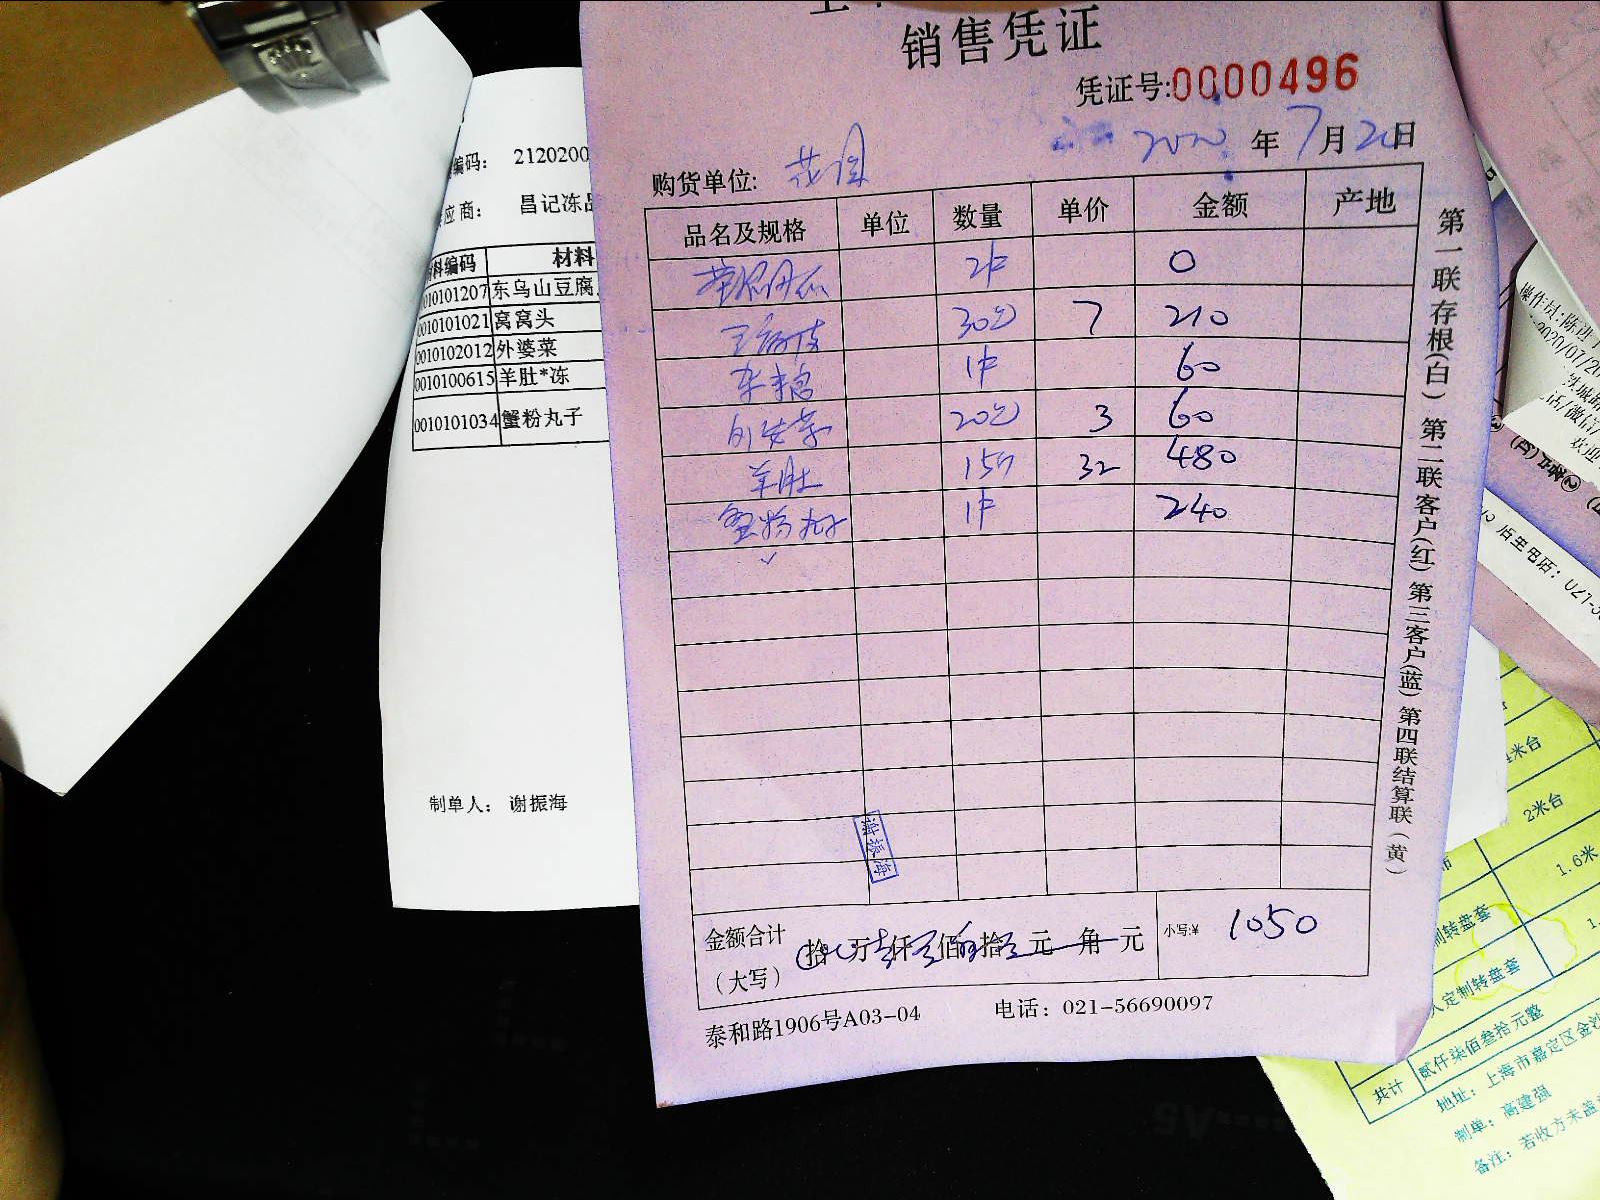 销售凭证
凭证号:0000496
2020年7月20日
购货单位:
品名及规格 单位 数量 单价 金额 产地
2件 0
30包 7 210
1件 60
外婆菜 20包 3 60
羊肚 15斤 32 480
蟹粉丸子 1件 240
谢振海
金额合计（大写） 拾 万 仟 佰 拾 元 角 元 小写:¥ 1050
泰和路1906号A03-04 电话：021-56690097
第一联存根(白) 第二联客户(红) 第三客户(蓝) 第四联结算联（黄）
编码： 2120200
应商： 昌记冻品
料编码 材料
0010101207 东乌山豆腐
0010101021 窝窝头
0010102012 外婆菜
0010100615 羊肚*冻
0010101034 蟹粉丸子
制单人： 谢振海
操作员:陈进
2020/07/20
欢迎
后厨电话：027-5
米台
2米台
1.6米
制转盘套
人定制转盘套
共计 贰仟柒佰叁拾元整
地址：上海市嘉定区金沙
制单：高建强
备注：若收方未